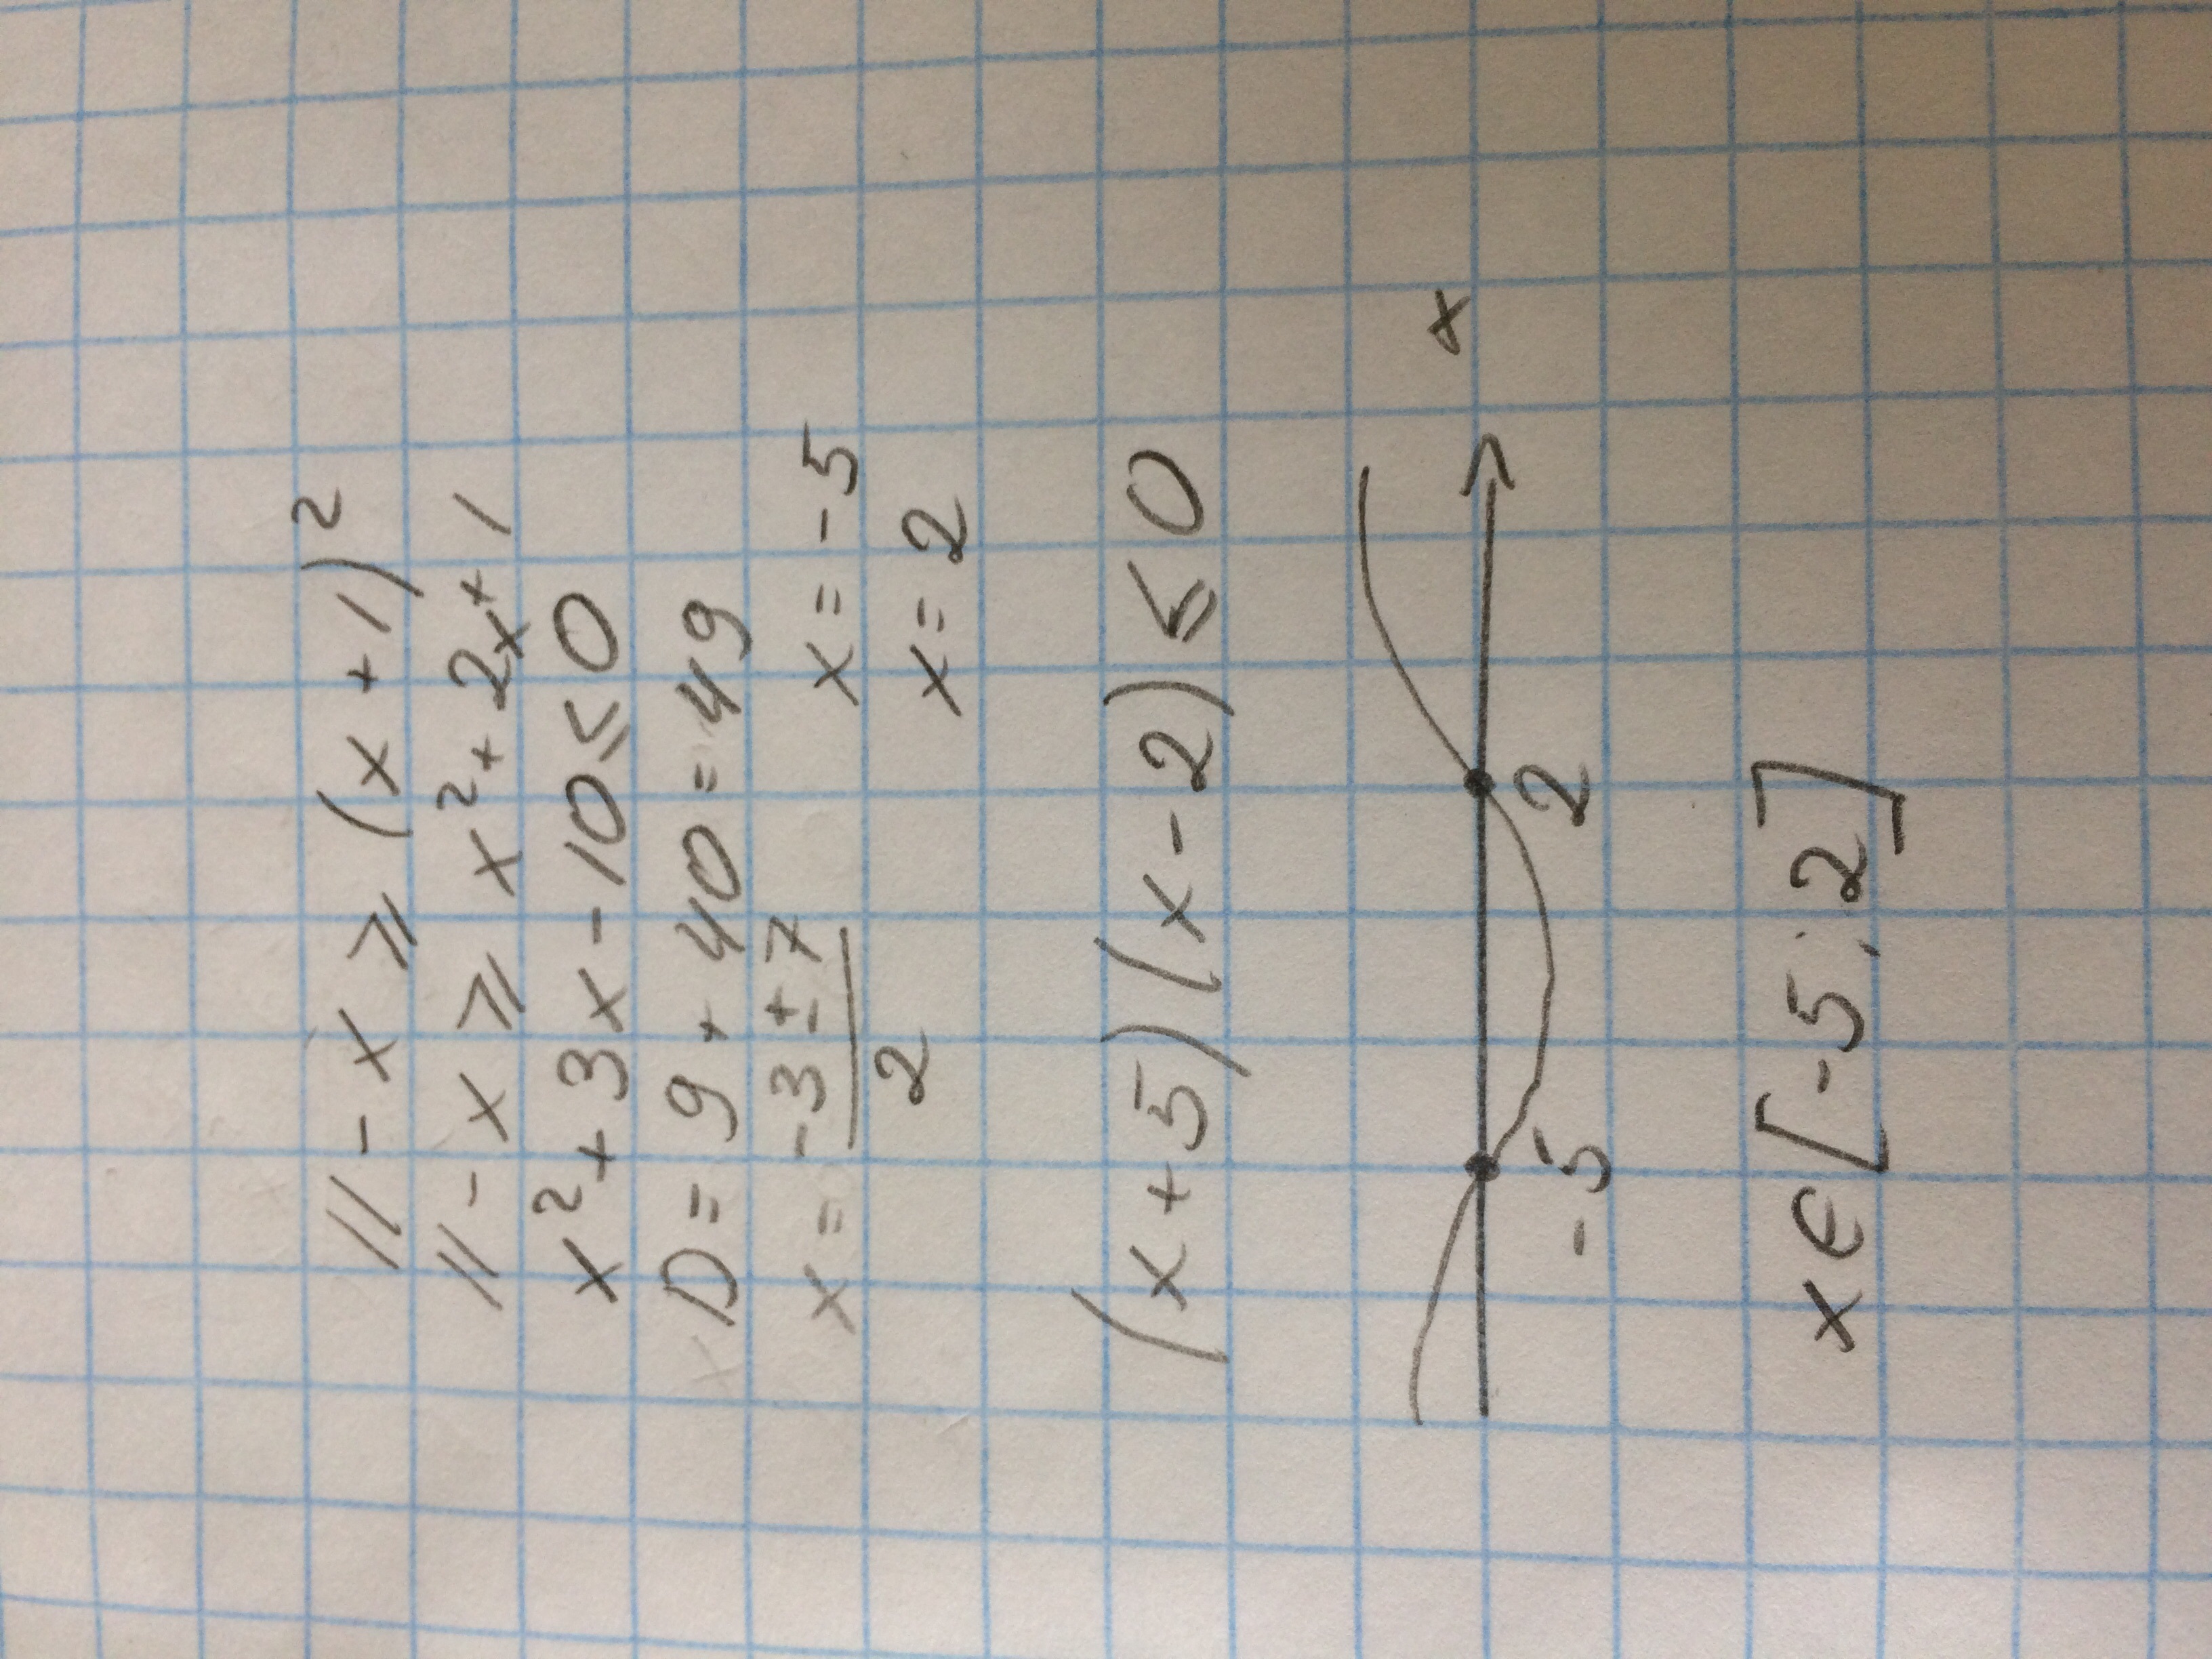 11 - x ⩾ (x + 1)²
11 - x ⩾ x² + 2x + 1
x² + 3x - 10 ≤ 0
D = 9 + 40 = 49
x = (-3 ± 7)/2 x = -5
x = 2
(x + 5)(x - 2) ≤ 0
x
-5 2
x ∈ [-5; 2]